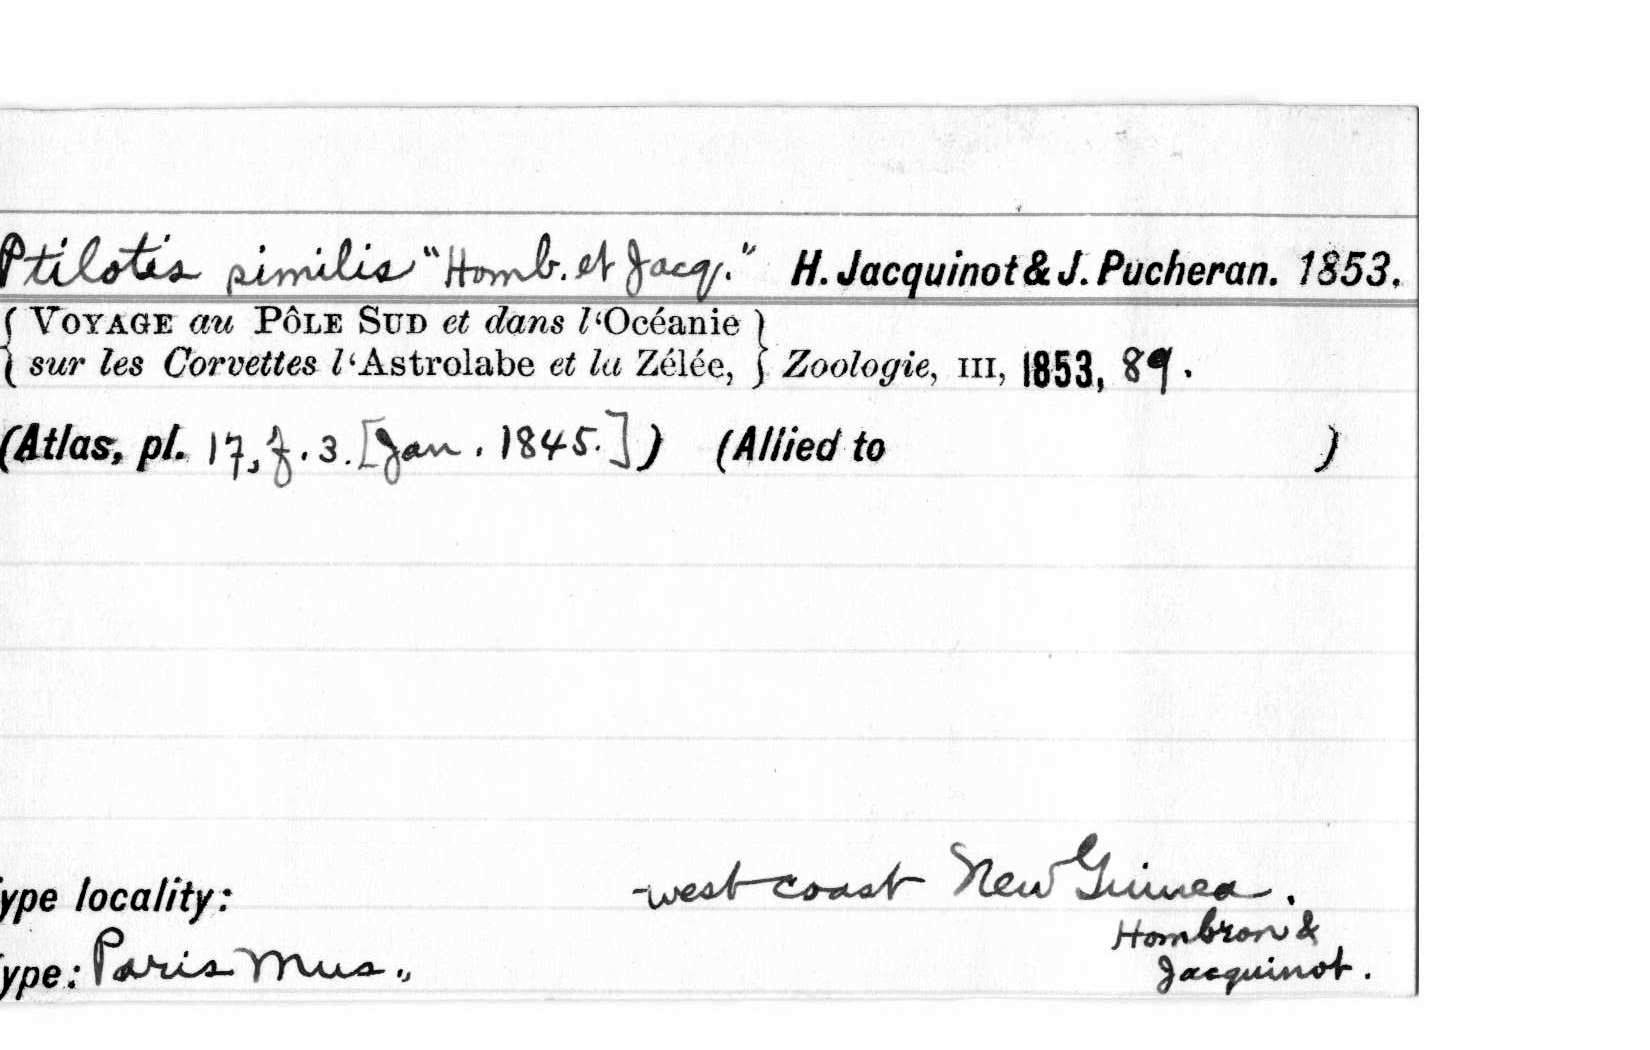 Ptilotis similis "Homb. et Jacq." H. Jacquinot & J. Pucheran. 1853.
{ VOYAGE au PÔLE SUD et dans l‘Océanie }
{ sur les Corvettes l‘Astrolabe et la Zélée, } Zoologie, III, 1853, 89.
(Atlas, pl. 17, f. 3. [Jan. 1845.]) (Allied to )
ype locality: west coast New Guinea.
Hombron &
ype: Paris Mus., Jacquinot.